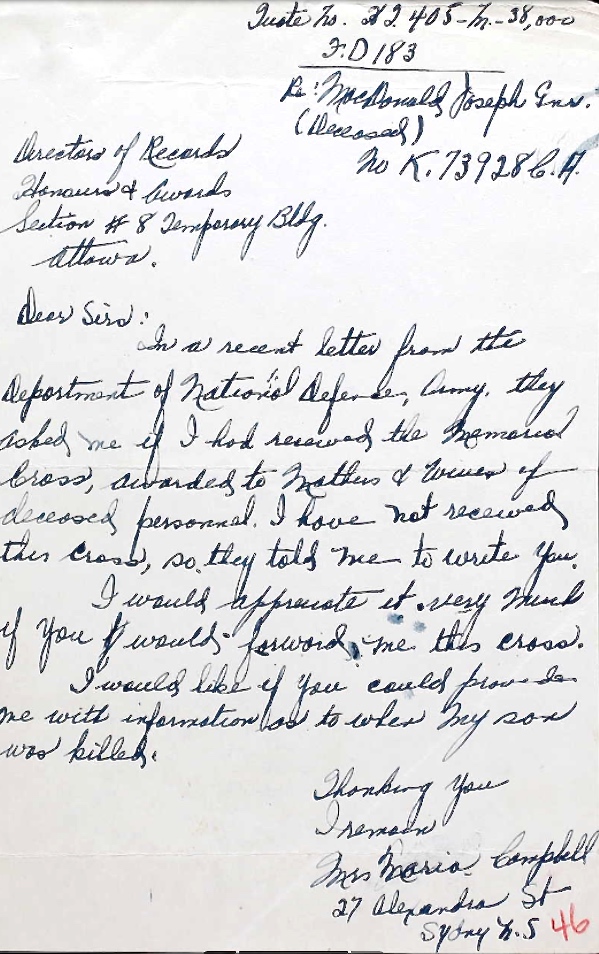 Quote No. HQ 405-M-38,000
F.D 183
Re: MacDonald, Joseph Gnr.
(Deceased)
No K.73928 C.A.
Directors of Records
Honours & Awards
Section # 8 Temporary Bldg.
Ottawa.
Dear Sirs:
In a recent letter from the
Department of National Defense, Army, they
asked me if I had received the Memorial
Cross, awarded to Mothers & Wives of
deceased personnel. I have not received
this cross, so they told me to write you.
I would appreciate it very much
if you would forward me this cross.
I would like if you could provide
me with information as to when my son
was killed.
Thanking You
I remain
Mrs Maria Campbell
27 Alexandra St
Sydney N.S
46